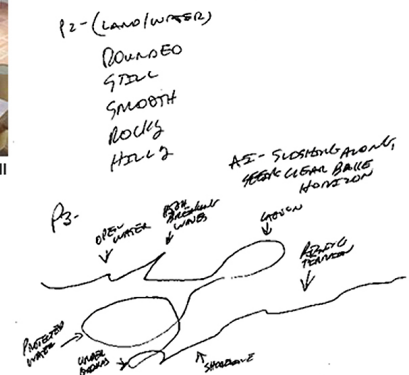 ll
P2-(LAND/WATER)
ROUNDED
STILL
SMOOTH
ROCKY
HILLY
AI- SLOSHING ALONG,
CLEAR
HORIZON
P3-
OPEN
WATER
BREAKING
WAVES
LAGOON
RISING
TERRAIN
PROTECTED
WATER
UNDER
SHORELINE